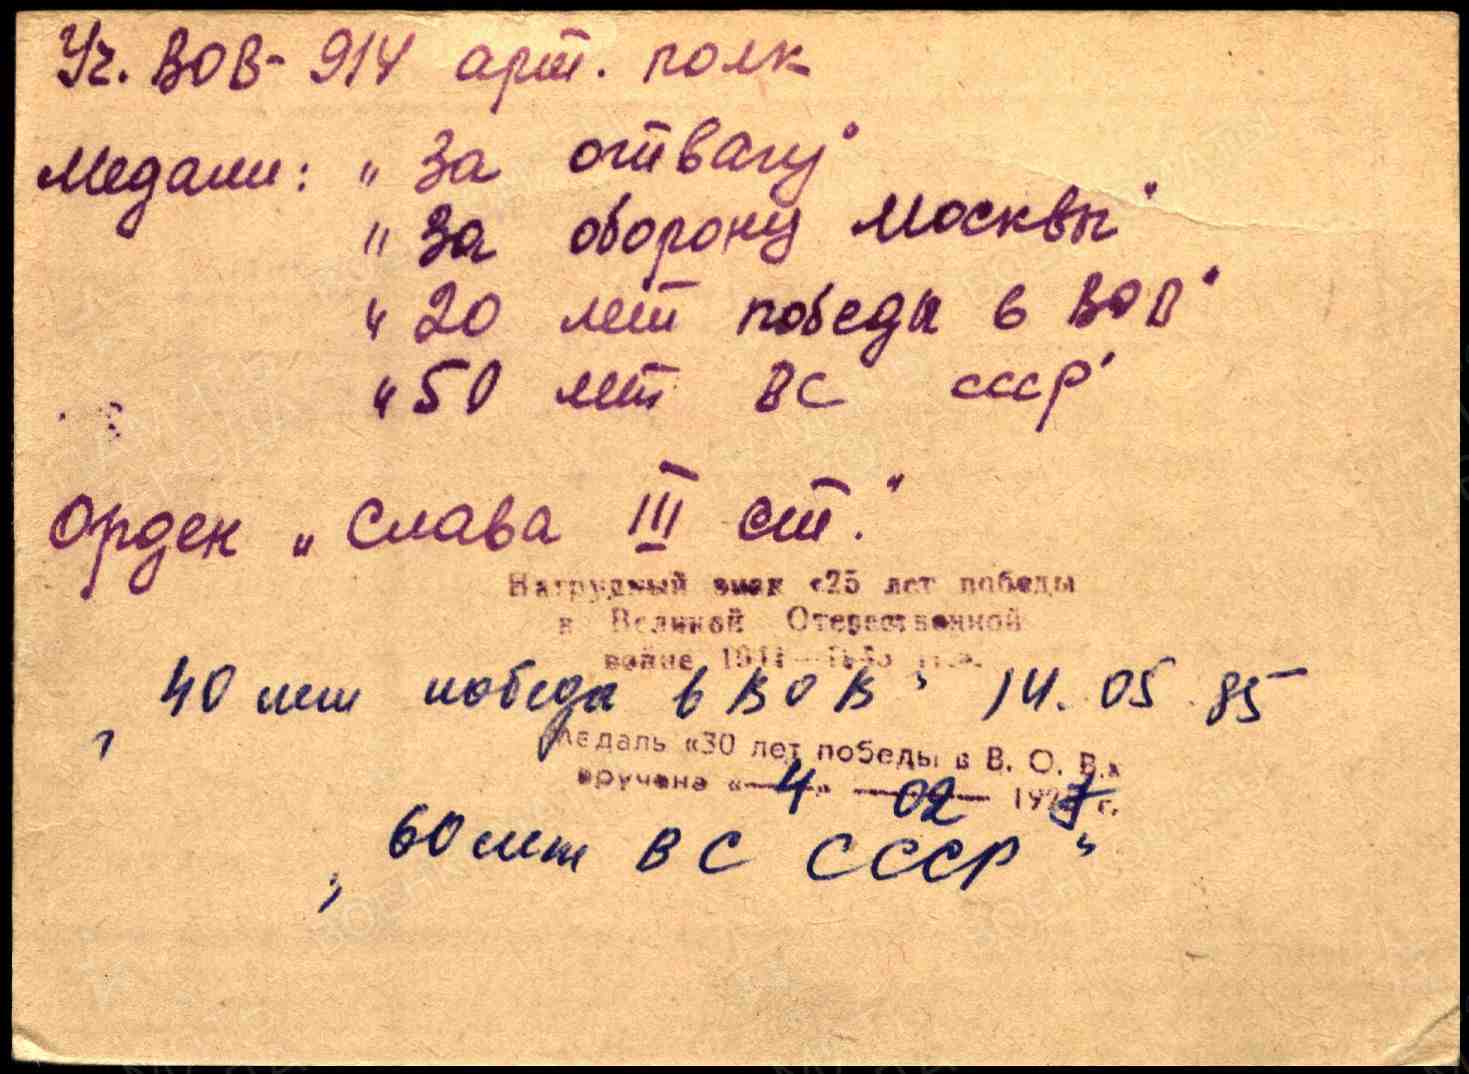 Уч. ВОВ - 914 арт. полк
Медали: „За отвагу"
„За оборону Москвы"
„20 лет победы в ВОВ"
„50 лет ВС СССР"
Орден „Слава III ст."
Нагрудный знак «25 лет победы
в Великой Отечественной
войне 1941—1945 гг.».
„40 лет победы в ВОВ" 14.05.85
Медаль «30 лет победы в В. О. В.»
вручена «4» 02 1977 г.
„60 лет ВС СССР"